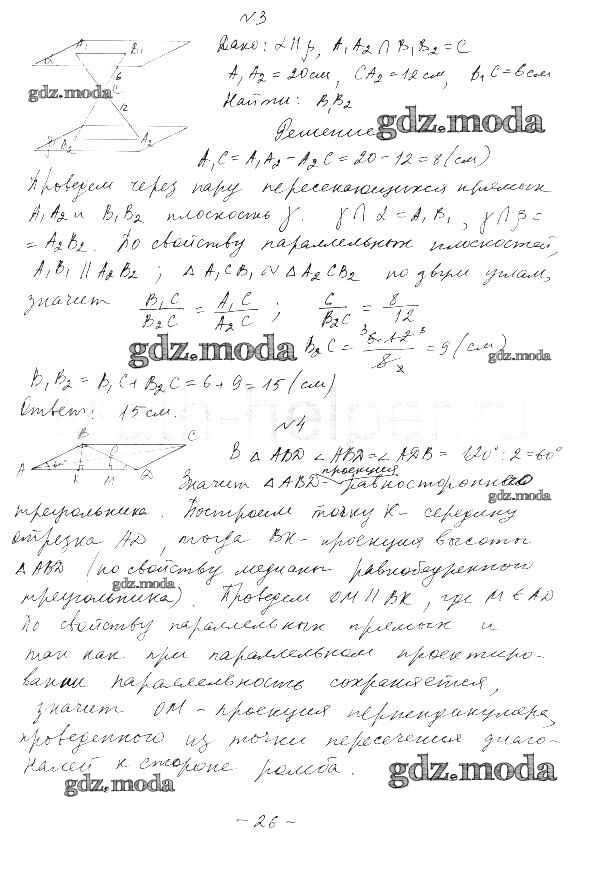 №3
Дано: α∥β, A₁A₂ ∩ B₁B₂ = C
A₁A₂ = 20см, CA₂ = 12см, B₁C = 6см
Найти: B₁B₂
Решение
A₁C = A₁A₂ − A₂C = 20 − 12 = 8 (см)
Проведем через пару пересекающихся прямых
A₁A₂ и B₁B₂ плоскость γ. γ ∩ α = A₁B₁, γ ∩ β =
= A₂B₂. По свойству параллельных плоскостей,
A₁B₁ ∥ A₂B₂; △A₁CB₁ ∾ △A₂CB₂ по двум углам,
значит B₁C/B₂C = A₁C/A₂C; 6/B₂C = 8/12
B₂C = 6·12/8 = 9 (см)
B₁B₂ = B₁C + B₂C = 6 + 9 = 15 (см)
Ответ: 15 см.
№4
В △ABD ∠ABD = ∠ADB = 120° : 2 = 60°
проекция
Значит △ABD – равностороннего
треугольника. Построим точку K – середину
отрезка AD, тогда BK – проекция высоты
△ABD (по свойству медианы равнобедренного
треугольника). Проведем OM ∥ BK, где M ∈ AD
По свойству параллельных прямых и
так как при параллельном проектиро-
вании параллельность сохраняется,
значит OM – проекция перпендикуляра,
проведенного из точки пересечения диаго-
налей к стороне ромба.
– 26 –
A₁ B₁ α 6 C 12 A₂ β
A B C D K M O
gdz.moda
gdz.moda
gdz.moda
gdz.moda
gdz.moda
gdz.moda
gdz.moda
gdz.moda